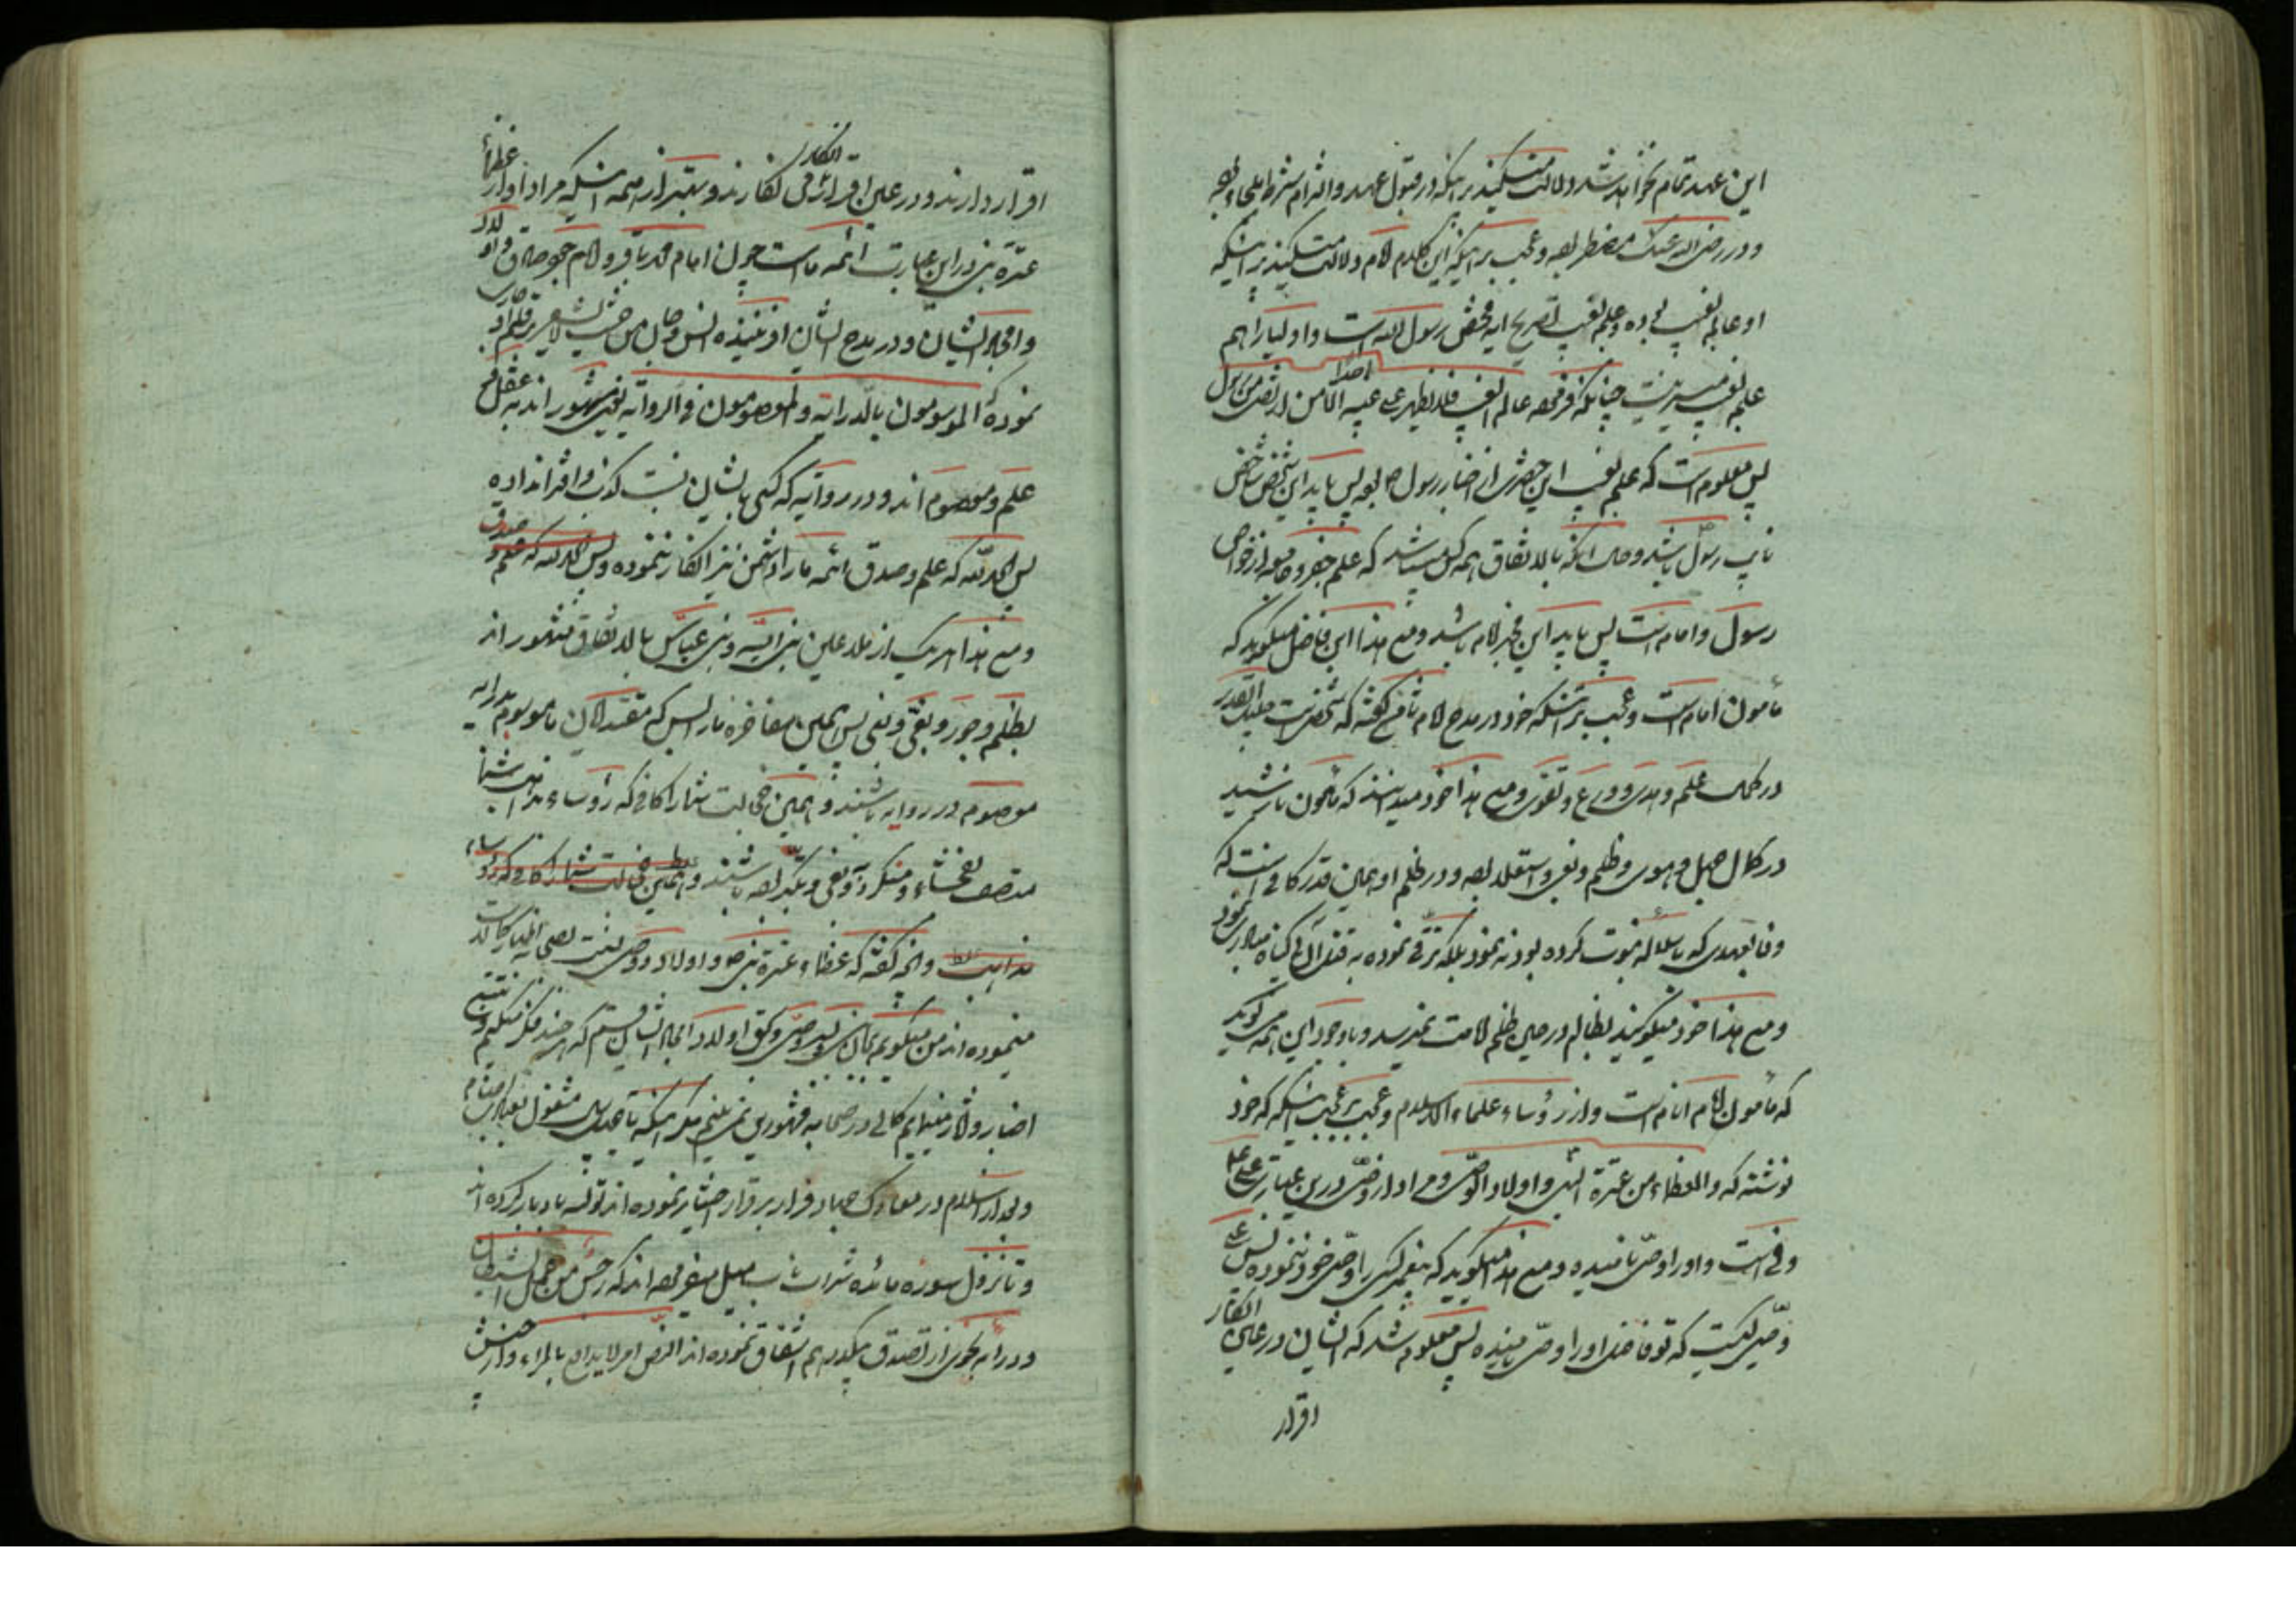 این عهد تمام نخواهد شد و دلالت میکند بر اینکه در قبول عهد و التزام شرط ملجاء و
و در رضی الله عنک مضطر بوده و عجب بر اینکه این کلام امام دلالت میکند بر اینکه
او عالم بغیب بوده و علم بغیب بصریح آیه مختص رسول الله است و اولیا را هم
علم بغیب میسر نیست چنانکه فرموده عالم الغیب فلا یظهر علی غیبه احدا الا من ارتضی من رسول
پس معلوم است که علم بغیب این حضرت از اخبار رسول ص بوده پس باید این شخص
نایب رسول باشد و حال آنکه بالاتفاق همه کس میباشد که علم جفر و جامعه از خواص
رسول و امام است پس باید این مخبر امام باشد و مع هذا این فاضل میگوید که
مأمون امام است و عجب تر اینکه خود در مدح امام ثامن گفته که شخصیست جلیل القدر
در کمال علم و هدی و ورع و تقوی و مع هذا خود میدانند که مأمون نارشید
در کمال جهل و هوی و ظلم و بغی و استقلال بوده و در ظلم او همین قدر کافی است که
وفا بعهدی که با سلاله نبوت کرده بود ننمود بلکه ترقی نموده به قتل آن بی گناه مبادرت نمود
و مع هذا خود میگویند بظالم در حین ظلم امامت نمیرسد و با وجود این همه میگوید
که مأمون امام انام است و از رؤساء علماء الاسلام و عجب بر عجب اینکه که خود
نوشته که و العظماء من عترة النبی و اولاد الوصی و مراد از وصی درین عبارت علی
وفی است و او را وصی نامیده و مع هذا میگوید که پیغمبر کسی را وصی خود ننموده پس
وصی کیست که تو فاضل او را وصی نامیده پس معلوم شد که ایشان در عین انکار
اقرار
اقرار دارند و در عین اقرار انکار دارند و بهتر از همه اینکه مراد او از عظماء
عترة نبی در این عبارت ائمه ماست چون امام محمد باقر و امام جعفر صادق و اولاد
و امجاد ایشان و در مدح ایشان
نموده که الموسومون بالدرایه و المعصومون فی الروایه یعنی مشهور اند به عقل و
علم و معصوم اند و در روایه که کسی بایشان نسبت کذب و افترا نداده
پس الحمد لله که علم و صدق ائمه ما را دشمن نیز انکار ننموده و پس الحمد لله که علم و صدق
و مع هذا هر یک از ملاعین بنی امیه و بنی عباس بالاتفاق مشهور اند
بظلم و جور و بغی و نفی پس همین مفاخره ما را بس که مقتدایان ما موسوم بدرایه
معصوم در روایه باشند و همین خجالت شما را کافی که رؤساء مذاهب شما
متصف بفحشاء و منکر و بغی و تکبر بوده باشند و همین خجالت شما را کافی که رؤساء
مذاهب و آنچه گفته که عظماء عترة نبی ص و اولاد وصی
مینموده اند من میگویم بجان نبی و وصی و بحق اولاد امجاد ایشان قسم که هر چند فکر میکنم و تتبع
اخبار و آثار مینمایم کمالی در صحابه مشهورین نمی بینم مگر اینکه تا چهل سال مشغول بعبادت اصنام
و بعد از اسلام در معارک جهاد فرار بر قرار اختیار نموده اند
و تا نزول سوره مائده شراب ناب میل میفرموده اند که رجس من عمل الشیطان
و در آیه نجوی از تصدق یکدرهم اشفاق نموده اند